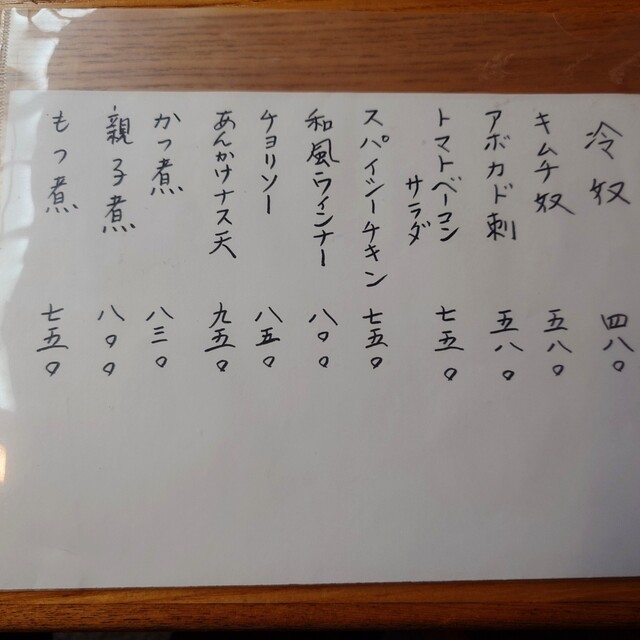 冷奴 四八〇
キムチ奴 五八〇
アボカド刺 五八〇
トマトベーコン
サラダ 七五〇
スパイシーチキン 七五〇
和風ウィンナー 八〇〇
チョリソー 八五〇
あんかけナス天 九五〇
かつ煮 八三〇
親子煮 八〇〇
もつ煮 七五〇